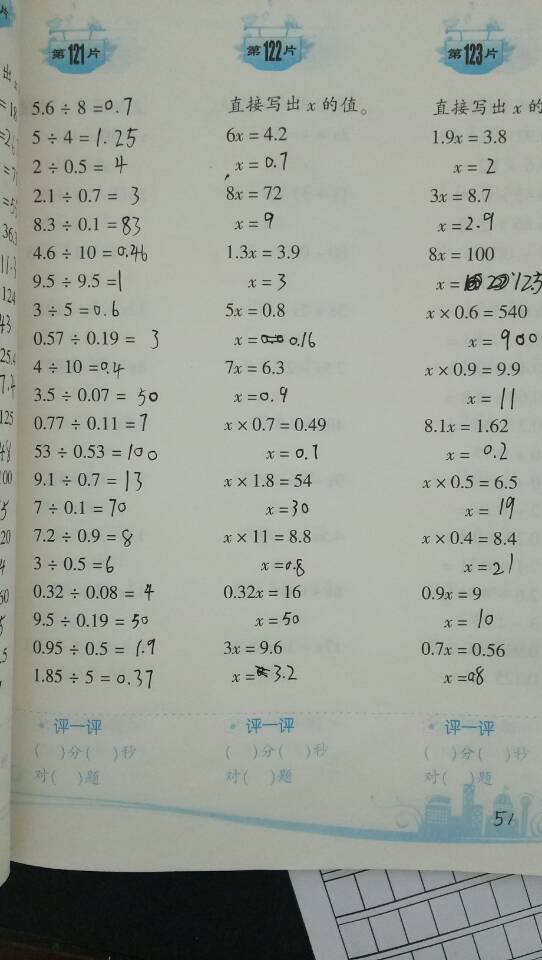 第121片
5.6 ÷ 8 = 0.7
5 ÷ 4 = 1.25
2 ÷ 0.5 = 4
2.1 ÷ 0.7 = 3
8.3 ÷ 0.1 = 83
4.6 ÷ 10 = 0.46
9.5 ÷ 9.5 = 1
3 ÷ 5 = 0.6
0.57 ÷ 0.19 = 3
4 ÷ 10 = 0.4
3.5 ÷ 0.07 = 50
0.77 ÷ 0.11 = 7
53 ÷ 0.53 = 100
9.1 ÷ 0.7 = 13
7 ÷ 0.1 = 70
7.2 ÷ 0.9 = 8
3 ÷ 0.5 = 6
0.32 ÷ 0.08 = 4
9.5 ÷ 0.19 = 50
0.95 ÷ 0.5 = 1.9
1.85 ÷ 5 = 0.37
评一评
( )分( )秒
对( )题
第122片
直接写出 x 的值。
6x = 4.2
x = 0.7
8x = 72
x = 9
1.3x = 3.9
x = 3
5x = 0.8
x = 0.16
7x = 6.3
x = 0.9
x × 0.7 = 0.49
x = 0.7
x × 1.8 = 54
x = 30
x × 11 = 8.8
x = 0.8
0.32x = 16
x = 50
3x = 9.6
x = 3.2
评一评
( )分( )秒
对( )题
第123片
直接写出 x 的
1.9x = 3.8
x = 2
3x = 8.7
x = 2.9
8x = 100
x = 12.5
x × 0.6 = 540
x = 900
x × 0.9 = 9.9
x = 11
8.1x = 1.62
x = 0.2
x × 0.5 = 6.5
x = 19
x × 0.4 = 8.4
x = 21
0.9x = 9
x = 10
0.7x = 0.56
x = 08
评一评
( )分( )秒
对( )题
51